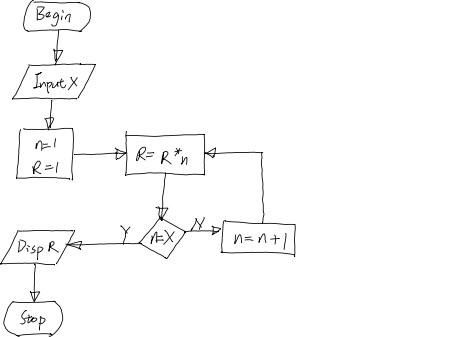 Begin
Input X
n=1
R=1
R= R*n
n=X
Y
N
n=n+1
Disp R
Stop